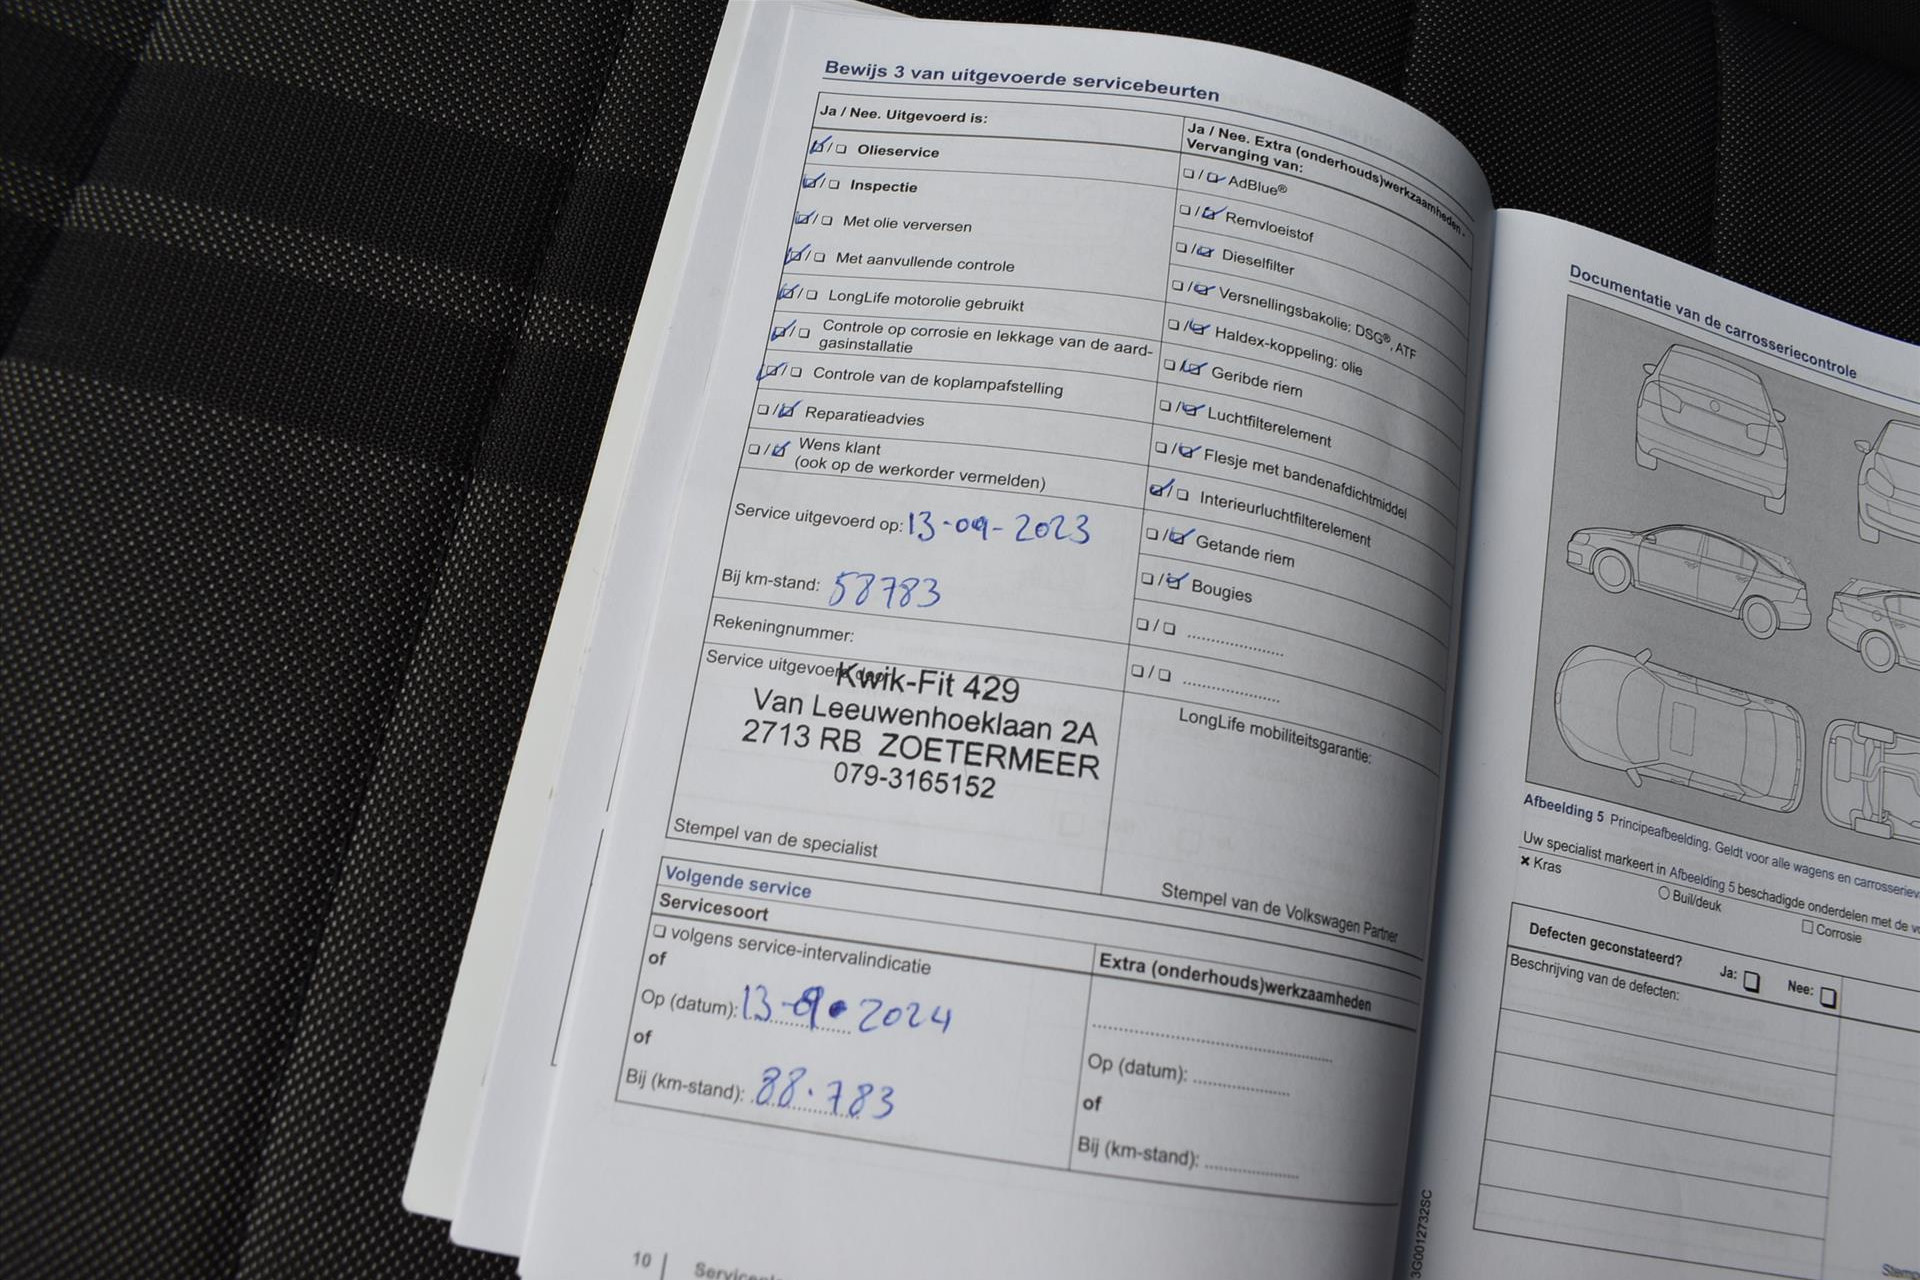 Bewijs 3 van uitgevoerde servicebeurten
Ja / Nee. Uitgevoerd is:
Olieservice
Inspectie
Met olie verversen
Met aanvullende controle
LongLife motorolie gebruikt
Controle op corrosie en lekkage van de aard-
gasinstallatie
Controle van de koplampafstelling
Reparatieadvies
Wens klant
(ook op de werkorder vermelden)
Service uitgevoerd op: 13-09-2023
Bij km-stand: 58783
Rekeningnummer:
Service uitgevoerd
Kwik-Fit 429
Van Leeuwenhoeklaan 2A
2713 RB ZOETERMEER
079-3165152
Stempel van de specialist
Ja / Nee. Extra (onderhouds)werkzaamheden -
Vervanging van:
AdBlue®
Remvloeistof
Dieselfilter
Versnellingsbakolie: DSG®, ATF
Haldex-koppeling: olie
Geribde riem
Luchtfilterelement
Flesje met bandenafdichtmiddel
Interieurluchtfilterelement
Getande riem
Bougies
LongLife mobiliteitsgarantie:
Stempel van de Volkswagen Partner
Volgende service
Servicesoort
volgens service-intervalindicatie
of
Op (datum): 13-9 2024
of
Bij (km-stand): 88.783
Extra (onderhouds)werkzaamheden
Op (datum):
of
Bij (km-stand):
10
3G0012732SC
Documentatie van de carrosseriecontrole
Afbeelding 5 Principeafbeelding. Geldt voor alle wagens en
Uw specialist markeert in Afbeelding 5 beschadigde onderdelen met de
× Kras
Buil/deuk
Corrosie
Defecten geconstateerd? Ja: Nee:
Beschrijving van de defecten: